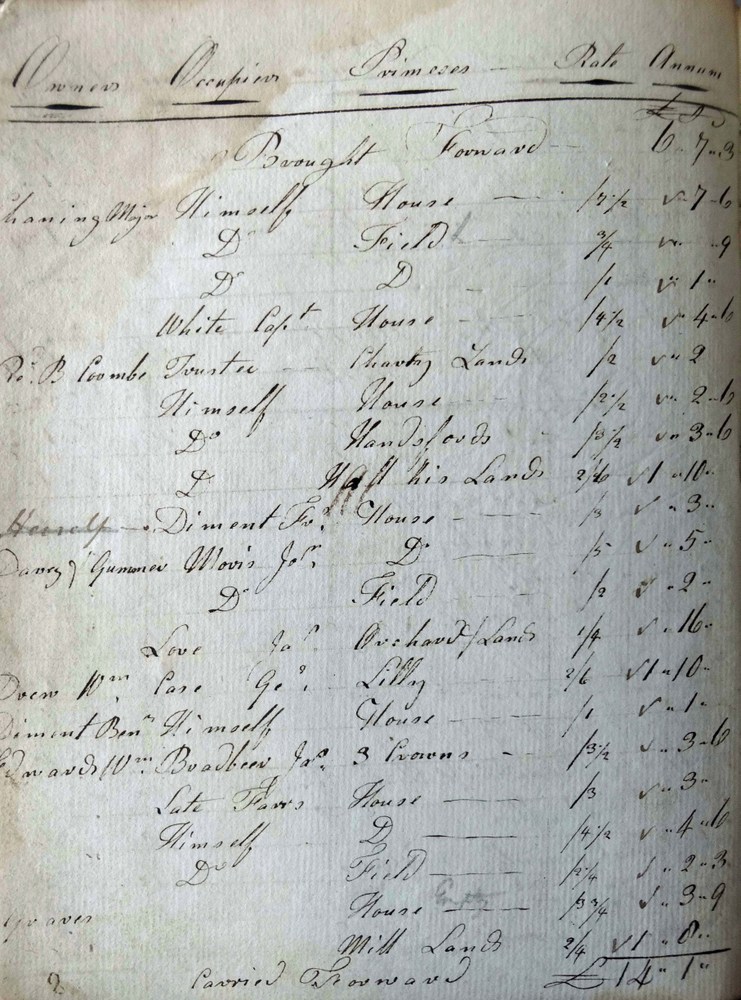 Owners Occupiers Primeses Rate Annum
£ S D
Brought Forward 6 " 7 " 3
Chaning Major Himself House /7 1/2 " 7 - 6
Do Field 3/4 " 9
Do D /1 " 1 "
White Capt House /4 1/2 " 4 " 6
B Coombe Trustee Charity Lands /2 " 2
Himself House /2 1/2 " 2 - 6
Do Handsfords /3 1/2 " 3 " 6
D Hall his Lands 2/6 1 " 10 "
Herself Diment House /3 " 3 "
Davey Gummer Movis Do /5 " 5 "
Do Field /2 " 2 "
Love Jas Orchard / Lands 1/4 " 16 "
Drew Wm Case Geo Lilly 2/6 1 " 10 "
Diment Benn Himself House /1 " 1 "
Edwards Wm Bradbeer Jas 3 Crowns /3 1/2 " 3 - 6
Late Farrs House /3 " 3 "
Himself D /4 1/2 " 4 " 6
Do Field /2 1/4 " 2 " 3
Graves House Empty /3 3/4 " 3 " 9
Mill Lands 2/4 1 " 8 "
2 Carried Forward £ 14 " 1 "